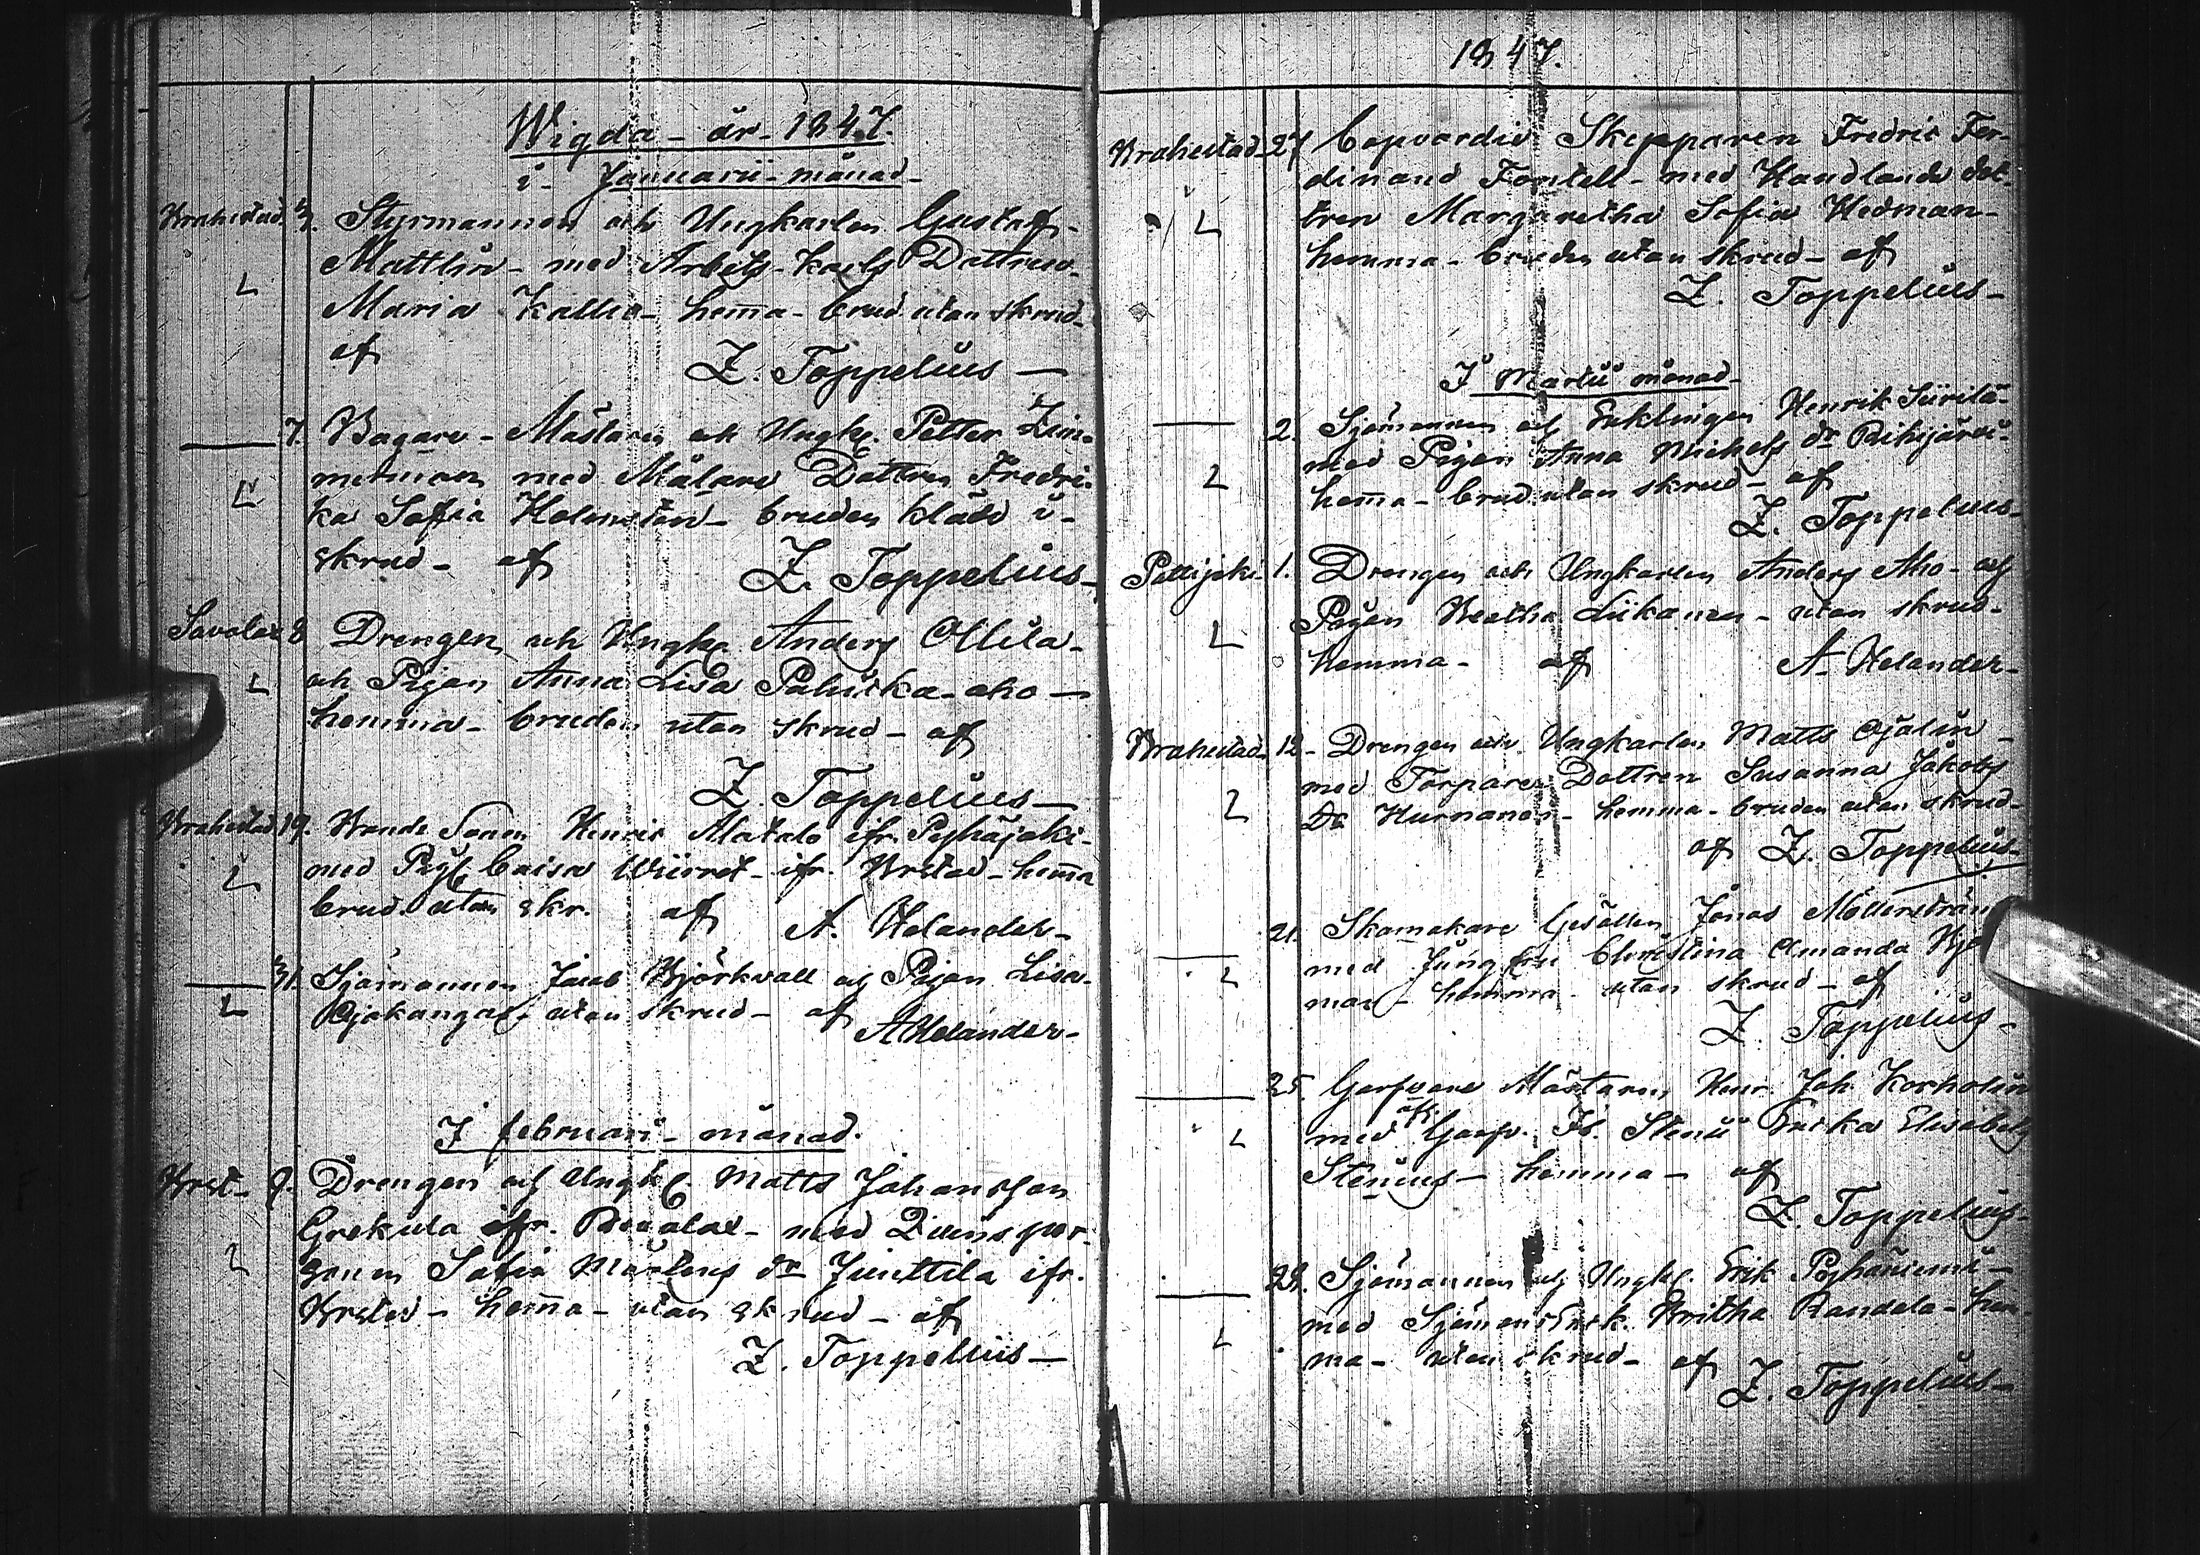 Wigda år 1847.
i Januarii månad
Brahestad 3/1. Styrmannen och Ungkarlen Gustaf
Mattlin med Arbets-karls Dottren
Maria Kallio hem̄a brud utan skrud
af Z. Toppelius
7. Bagare-Mästaren och Ungk. Petter Zim-
merman med Målare Dottren Fredri-
ka Sofia Holmsten bruden klädd i
skrud af
Z. Toppelius
Savolax 8 Drengen och Ungk. Anders Ollila
och Pigan Anna Lisa Paluska-aho
hemma bruden utan skrud af
Z. Toppelius
Brahestad 19. Bonde Sonen Henric Alatalo ifr. Pyhäjoki
med Pig. Caisa Wiiret ifr. Brstad hem̄a
brud. utan skr. af A. Helander
31. Sjömannen Jacob Björkvall och Pigan Lisa
Ojakangas utan skrud af
A Helander
I februari månad.
Brst. 9. Drengen och Ungk. Matts Johansson
Grekula ifr. med Qvinsper-
sonen Sofia Mårtens dr Junttila ifr.
Brstad hem̄a utan skrud af
Z. Toppelius
1847.
Brahestad 27 Copvardie Skepparen Fredric Fer-
dinand Fontell med Handlande dot-
tren Margaretha Sofia Hedman
hemma bruden utan skrud af
Z. Toppelius
I Martii månad
2. Sjömannen och Enklingen Henrik Siirilä
med Pigan Anna Michels dr Pihijärvi
hem̄a brud utan skrud af
Z. Toppelius
Pattijoki 1. Drengen och Ungkarlen Anders Aho och
Pigan Beatha Liikanen utan skrud
hemma af A. Helander
Brahestad 12 Drengen och Ungkarlen Matts Ojalin
med Torpare Dottren Susanna Jakobs
Dr Hurnanen hemma bruden utan skrud
af Z. Toppelius
21. Skomakare Gesällen Jonas Möllerström
med Jungfru Christina Amanda
man hemma utan skrud af
Z. Toppelius
25. Garfvare Mästaren Henr. Joh. Korholin
med afl. Garfv. Is. Stenii Enka Elisabeth
Stenius hemma af
Z. Toppelius
29. Sjömannen och Ungk. Erik Pyhäniemi
med Sjömans Enk. Britha Randela hem-
ma utan skrud af
Z. Toppelius